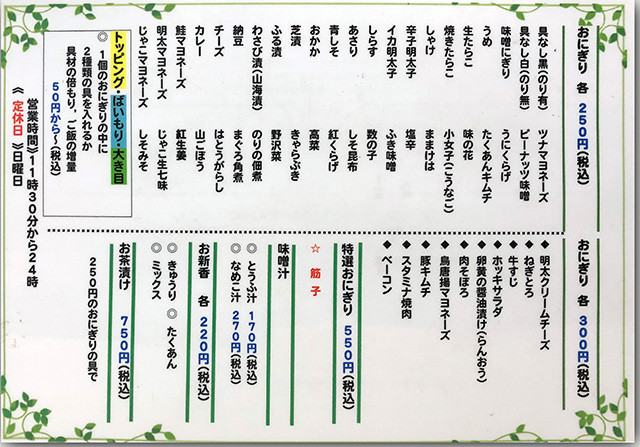 おにぎり 各 250円(税込)
具なし黒(のり有)
具なし白(のり無)
味噌にぎり
うめ
生たらこ
焼きたらこ
しゃけ
辛子明太子
イカ明太子
しらす
あさり
青しそ
おかか
芝漬
ふる漬
わさび漬(山海漬)
納豆
チーズ
カレー
鮭マヨネーズ
明太マヨネーズ
じゃこマヨネーズ
ツナマヨネーズ
ピーナッツ味噌
うにくらげ
たくあんキムチ
味の花
小女子(こうなご)
ままけは
塩辛
ふき味噌
数の子
しそ昆布
紅くらげ
高菜
きゃらぶき
野沢菜
のりの佃煮
まぐろ角煮
はとうがらし
山ごぼう
紅生姜
じゃこ生七味
しそみそ
トッピング・ばいもり・大き目
◎ 1個のおにぎりの中に
2種類の具を入れるか
具材の倍もり、ご飯の増量
50円から~(税込)
営業時間》11時30分から24時
《 定休日 》日曜日
おにぎり 各 300円(税込)
◆ 明太クリームチーズ
◆ ねぎとろ
◆ 牛すじ
◆ ホッキサラダ
◆ 卵黄の醤油漬け(らんおう)
◆ 肉そぼろ
◆ 鳥唐揚マヨネーズ
◆ 豚キムチ
◆ スタミナ焼肉
◆ ベーコン
特選おにぎり 550円(税込)
☆ 筋子
味噌汁
◎ とうふ汁 170円(税込)
◎ なめこ汁 270円(税込)
お新香 各 220円(税込)
◎ きゅうり ◎ たくあん
◎ ミックス
お茶漬け 750円(税込)
250円のおにぎりの具で